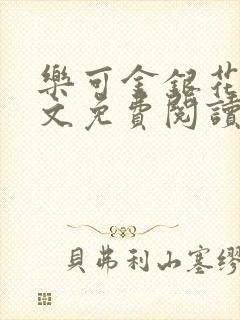 樂可金銀花
文免費閱讀
貝弗利山塞繆